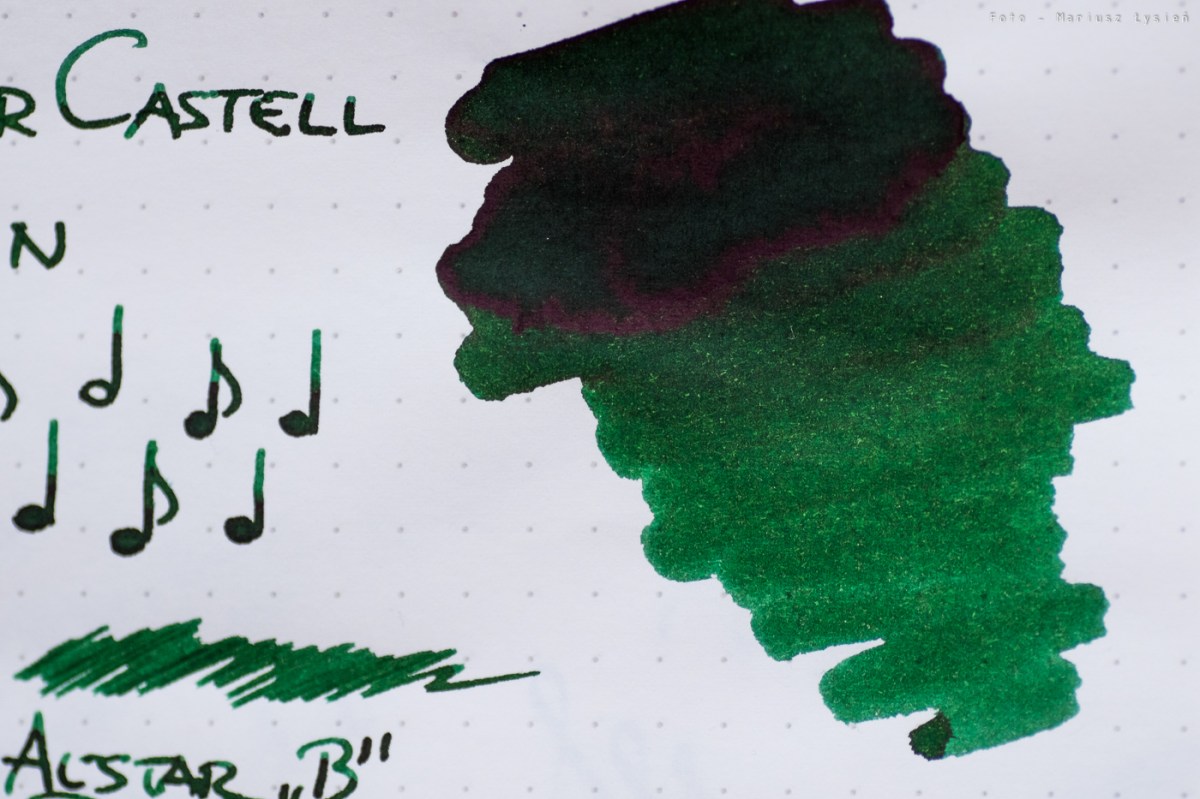 Foto - Mariusz Łysień
R CASTELL
N
ALSTAR „B"